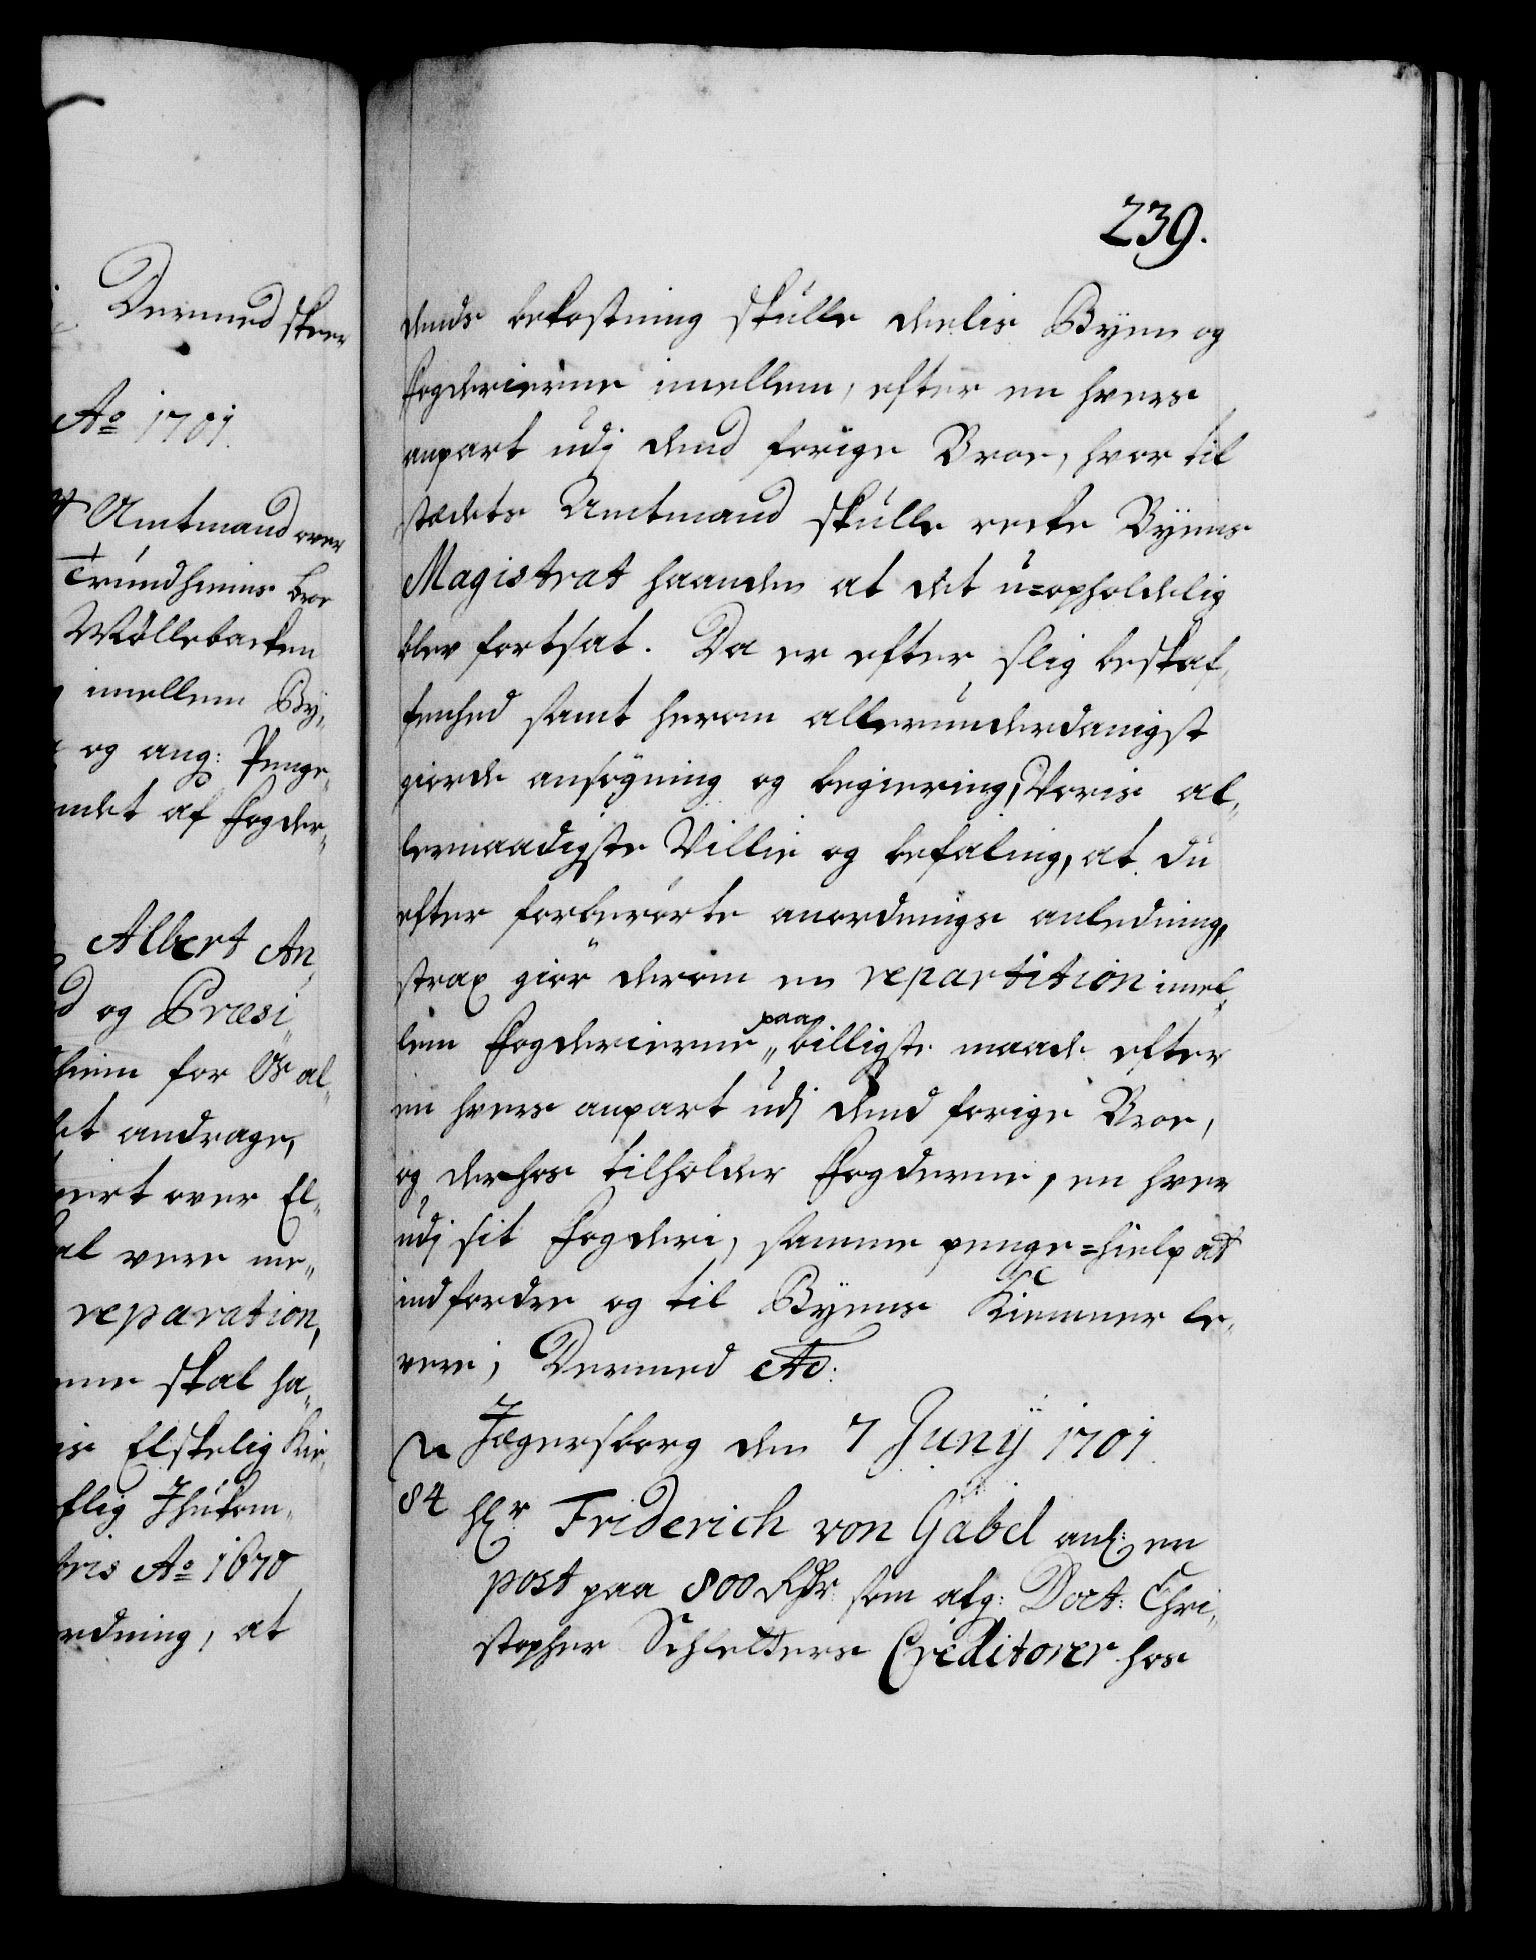 Dermed skeer
Ao 1701.
Amtmand over
Trundhiems Broe
Møllebacken
imellem By,
og ang: Penge,,
af fogder,,
Albert An,,
og Præsi,,
hiem for Os al,,
andrage,
over El,,
vere me,,
reparation,
skal ha,,
Elskelig Kie,,
Ihukom,,
Ao 1670
ordning, at
239.
dends bekostning skulle deelis Byen og
fogderierne imellem, efter en hvers
anpart udj dend forige Broe, hvor til
stedets Amtmand skulle recke Byens
Magistrat haanden at det u=opholdelig
blev fortsat. Da er efter slig beskaf,,
fenhed samt herom allerunderdanigst
giorde ansøgning og begiering, Voris al,,
lernaadigste Villie og befaling, at du
efter forberørte anordnings anledning,
strax giør derom en repartition imel,,
lem fogderierne paa billigste maade efter
en hvers anpart udj dend forige Broe,
og derhos tilholder fogderne, en hver
udj sit fogderi, samme penge=hielp at
indfordre og til Byens Kiemner le,,
vere; Dermed etc:
Jægersborg den 7 Junÿ 1701.
84 Hr Friderich von Gabel anl: en
post paa 800 Rdr som afg: Doct: Chri,,
stopher Schletters Creditorer hos